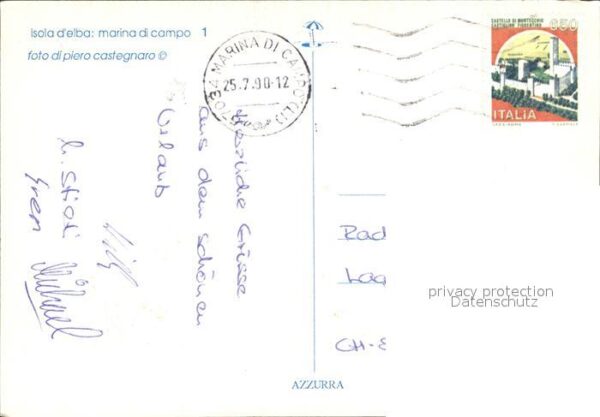 Isola d'elba: marina di campo 1
foto di piero castegnaro ©
57034 MARINA DI CAMPO (LI)
25.7.90-12
CASTELLO DI MONTECCHIO
CASTIGLION FIORENTINO
650
ITALIA
Herzliche Grüsse
aus dem schönen
Urlaub
Michael
Rad
Laa
CH-8
privacy protection
Datenschutz
AZZURRA